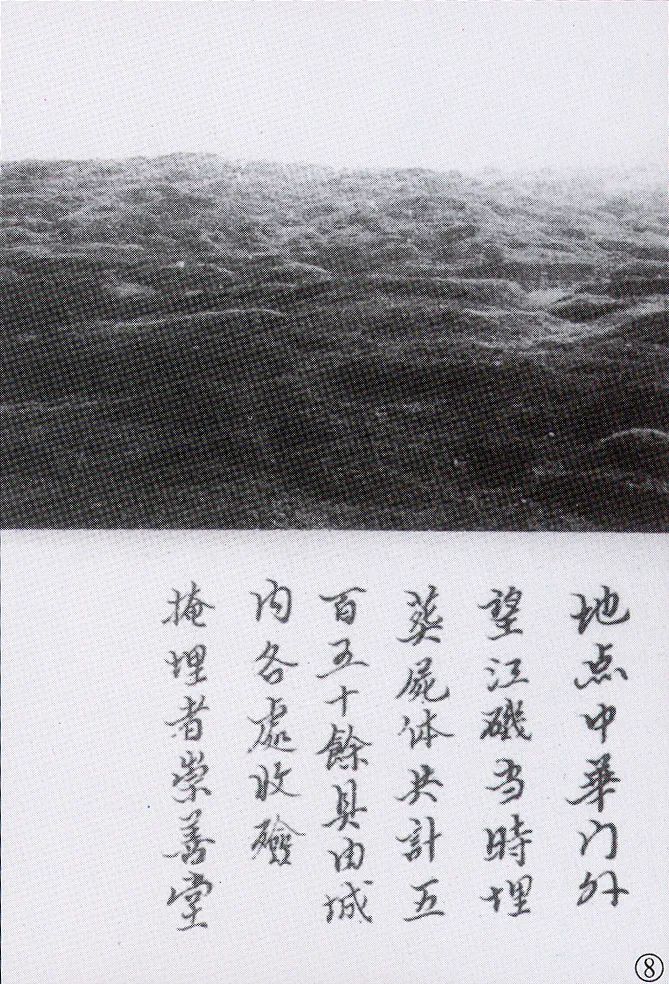 地点中華门外
望江磯当時埋
葵屍体共計五
百五十餘具由城
内各處收殮
掩埋者崇善堂
⑧